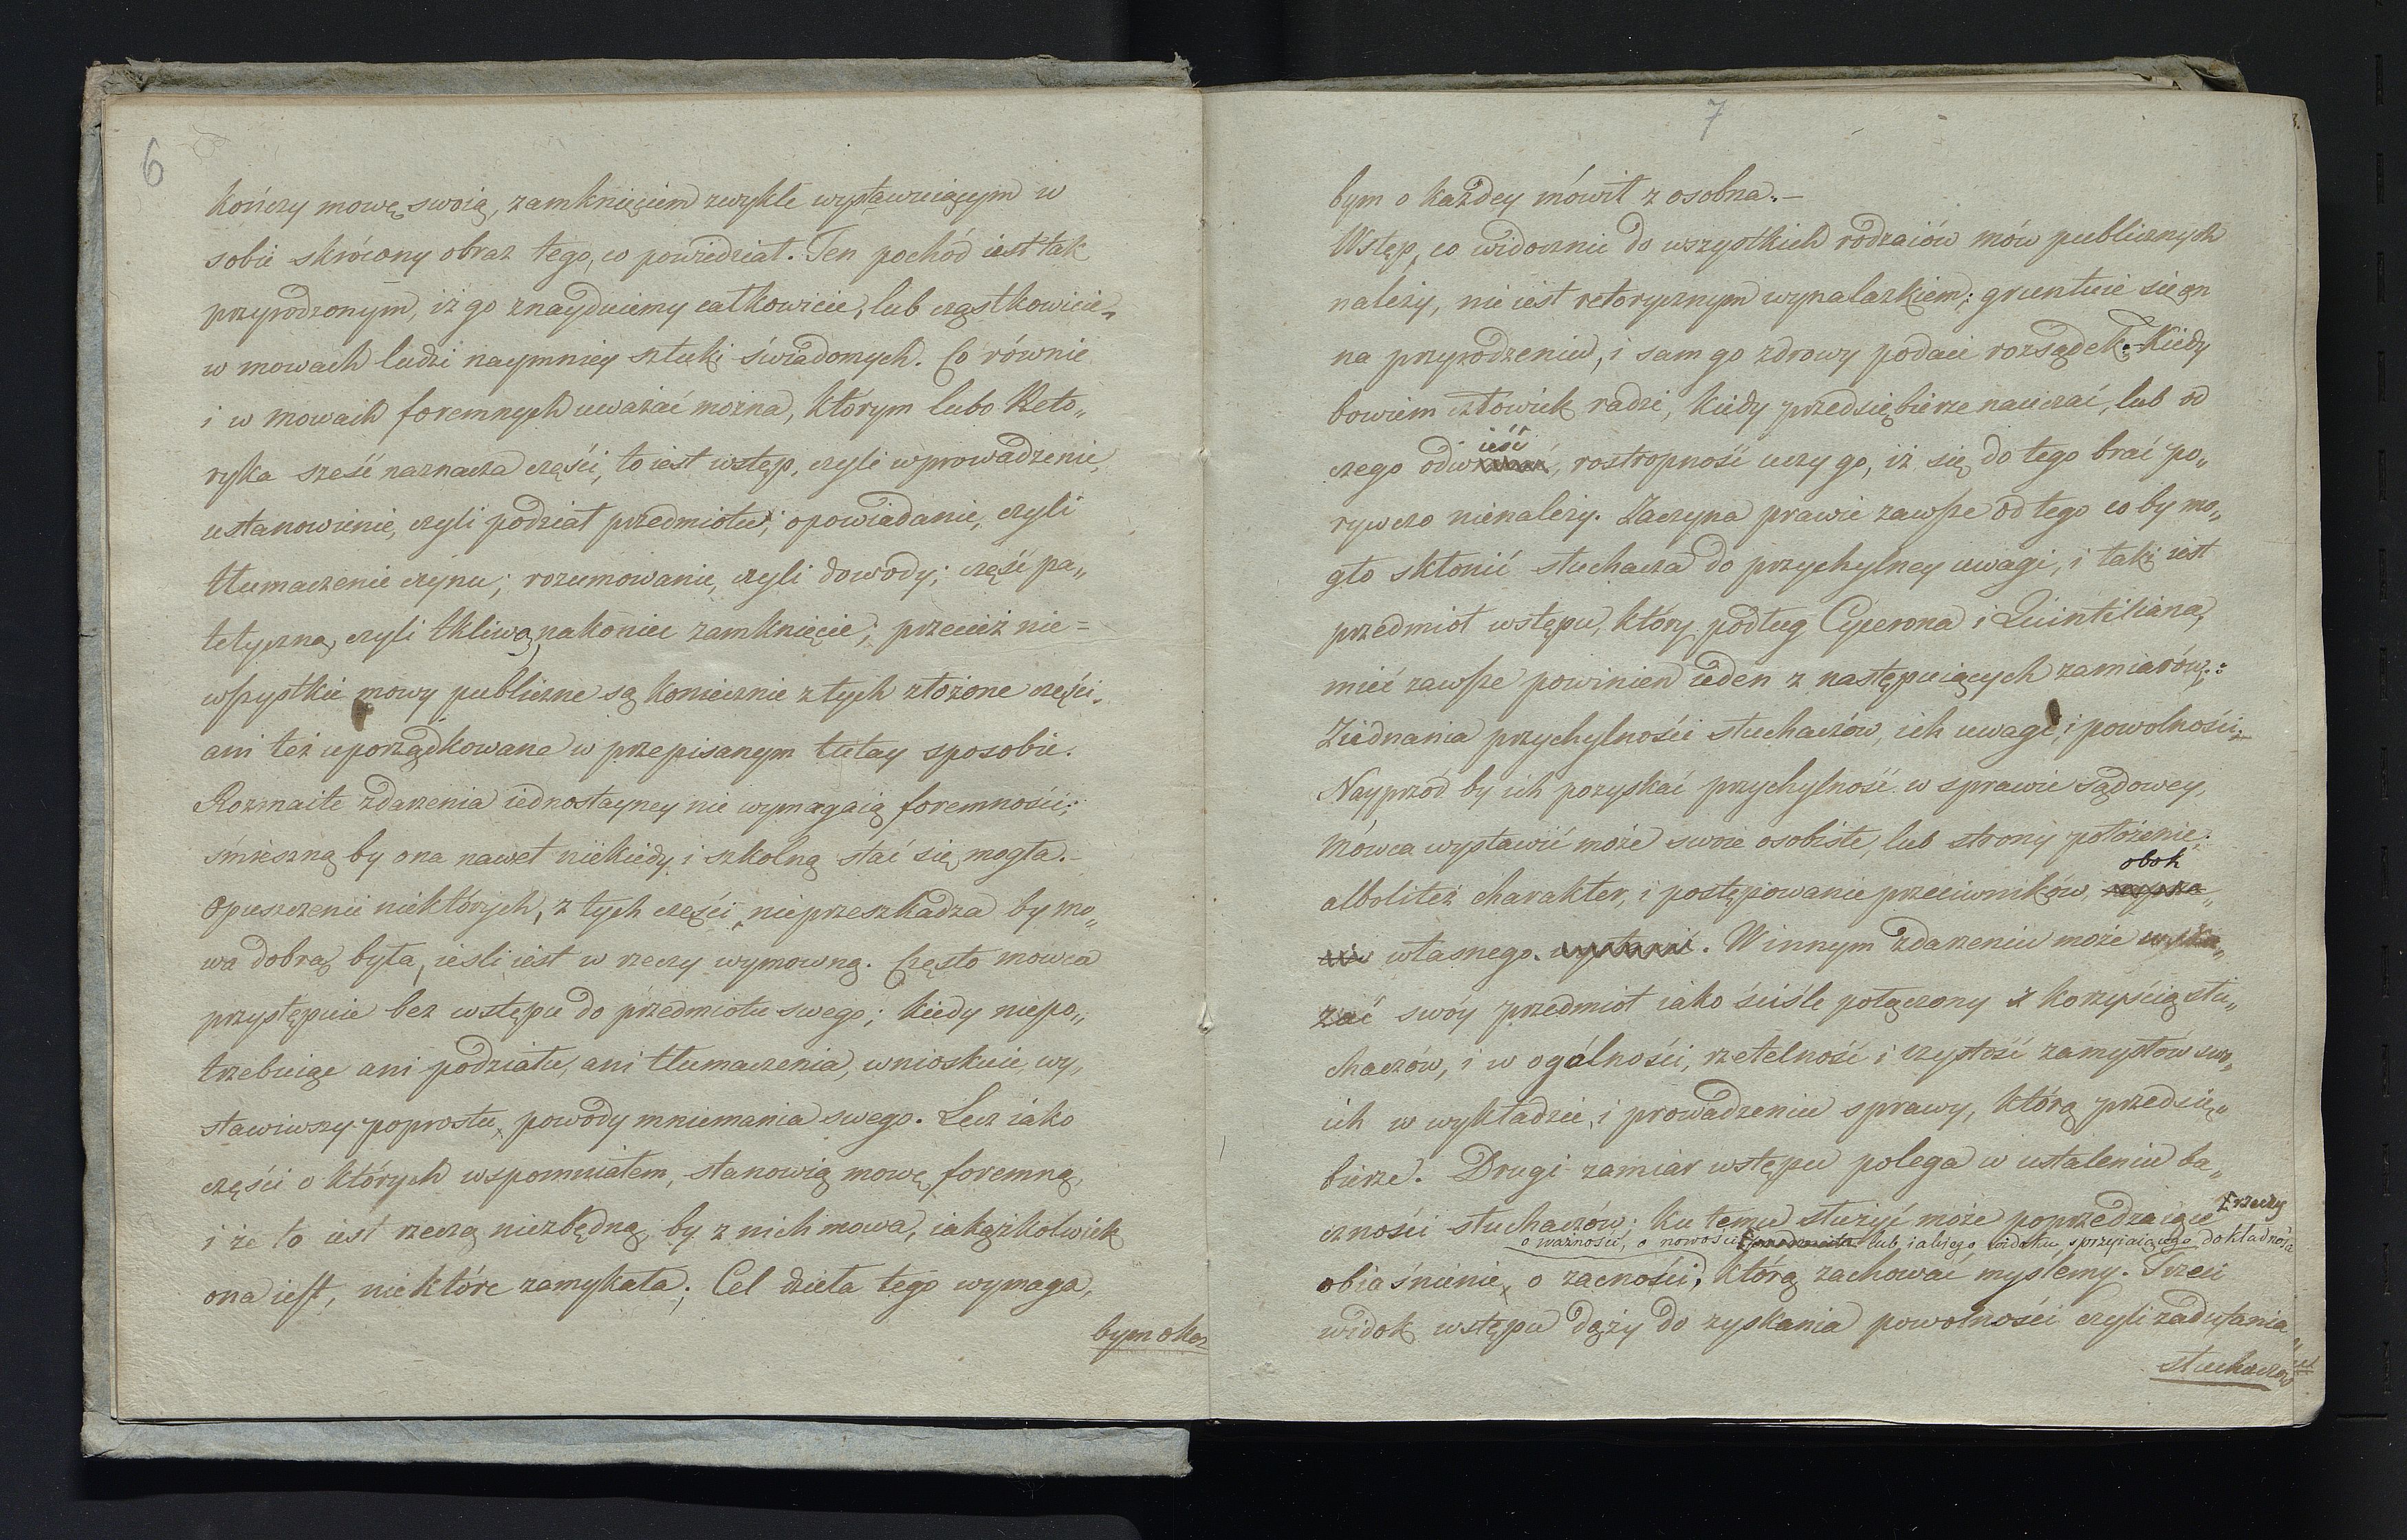 6
kończy mowę swoią, zamknięciem zwykle wystawuiącym w
sobie skrócony obraz tego, co powiedział. Ten pochód iest tak
przyrodzonym, iż go znayduiemy całkowicie, lub cząstkowicie„
w mowach ludzi naymniey sztuki świadomych. Co równie
i w mowach foremnych uważać można, którym lubo Reto„
ryka sześć naznacza części, to iest wstęp, czyli wprowadzenie,
ustanowienie, czyli podział przedmiotu; opowiadanie, czyli
tłumaczenie czynu; rozumowanie, czyli dowody; część pa„
tetyczną, czyli tkliwą, nakoniec zamknięcie; przecież nie=
wszystkie mowy publiczne są koniecznie z tych złożone części.
ani też uporządkowane w przepisanym tutay sposobie.
Rozmaite zdarzenia iednostayney nie wymagaią foremności;
śmieszną by ona nawet niekiedy i szkolną stać się mogła.–
Opuszczenie niektórych, z tych części, nieprzeszkadza by mo„
wa dobrą była, iesli iest w rzeczy wymowną. Często mówca
przystępuie bez wstępu do przedmiotu swego; kiedy niepo„
trzebuiąc ani podziału, ani tłumaczenia, wnioskuie, wy„
stawiwszy poprostu, powody mniemania swego. Lecz iako
części o których wspomniałem, stanowią mowę foremną,
i że to iest rzeczą niezbędną, by z nich mowa, iakążkolwiek
ona iest, niektóre zamykała; Cel dzieła tego wymaga,
bym o każ
7
bym o każdey mówił z osobna.–
Wstęp, co widocznie do wszystkich rodzaiów mów publicznych
należy, nie iest retorycznym wynalazkiem; gruntuie się on
na przyrodzeniu, i sam go zdrowy podaie rozsądek. Kiedy
bowiem człowiek radzi, kiedy przedsiębierze nauczać, lub od
ieść
czego odw , rostropność uczy go, iż się do tego brać po„
rywczo nienależy. Zaczyna prawie zawsze od tego co by mo„
gło skłonić słuchacza do przychylney uwagi, i taki iest
przedmiot wstępu, który podług Cycerona i Quintiliana,
mieć zawsze powinien ieden z następuiących zamiarów:
Ziednania przychylności słuchaczów, ich uwagi, i powolności.–
Nayprzód by ich pozyskać przychylność w sprawie sądowey,
Mówca wystawić może swoie osobiste, lub strony położenie;
obok
alboliteż charakter, i postępowanie przeciwników,
własnego. wystawić. W innym zdarzeniu może wyka„
zać swóy przedmiot iako ściśle połączony z korzyścią słu„
chaczów, i w ogólności, rzetelność i czystość zamysłów swo„
ich w wykładzie, i prowadzeniu sprawy, którą przedsię„
bierze. Drugi zamiar wstępu polega w ustaleniu ba„
czności słuchaczów; ku temu służyć może poprzedzaiące
rzeczy
o ważności, o nowości przedmiotu lub iakiego widoku sprzyiaiącego dokładność
obiaśnienie, o zacności, którą zachować myślemy. Trzeci
widok wstępu dąży do zyskania powolności czyli zadufania
słuchaczów